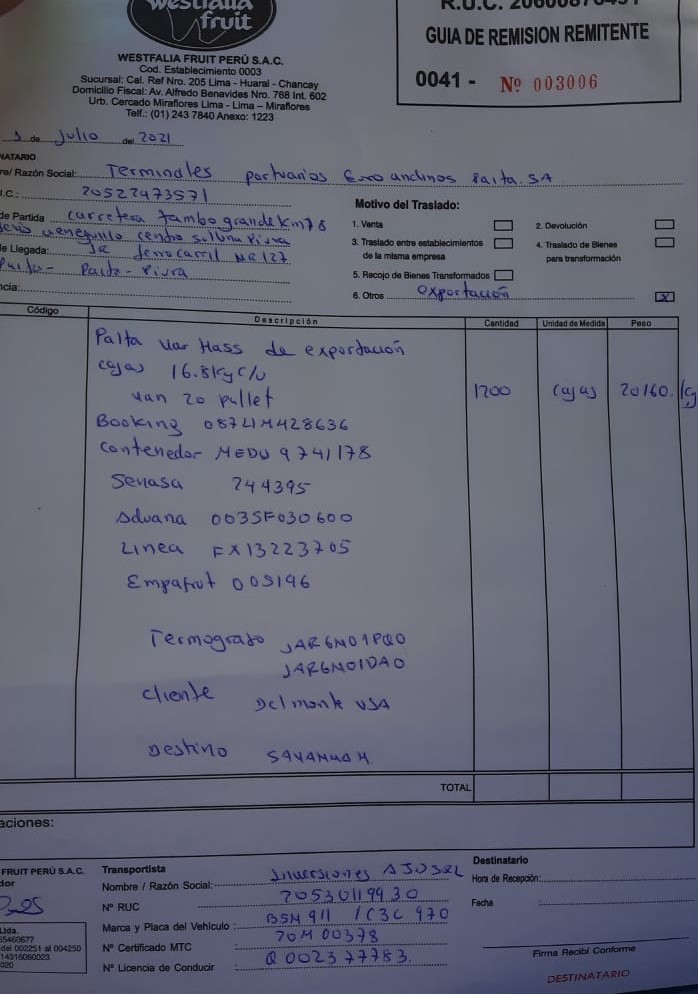 Westfalia
fruit
WESTFALIA FRUIT PERÚ S.A.C.
Cod. Establecimiento 0003
Sucursal: Cal. Ref Nro. 205 Lima - Huaral - Chancay
Domicilio Fiscal: Av. Alfredo Benavides Nro. 768 Int. 602
Urb. Cercado Miraflores Lima - Lima – Miraflores
Telf.: (01) 243 7840 Anexo: 1223
R.U.C.
GUIA DE REMISION REMITENTE
0041 - Nº 003006
de Julio del 2021
NATARIO
re/ Razón Social: Terminales portuarios Euroandinos Paita. SA
.C.: 20522473571
de Partida carretera tambogrande Km 78
centro Sullana Piura
e Llegada: Jr ferrocarril Nº 127
Paita - Paita - Piura
ncia:
Motivo del Traslado:
1. Venta
2. Devolución
3. Traslado entre establecimientos
de la misma empresa
4. Traslado de Bienes
para transformación
5. Recojo de Bienes Transformados
6. Otros exportación X
Código Descripción Cantidad Unidad de Medida Peso
Palta var Hass de exportación
cajas 16.8kg c/u 1200 cajas 20160. kg
van 20 pallet
Booking 087LM428636
contenedor MEDU 9741178
Senasa 244395
Aduana 003SF030600
Linea FX13223705
Empafrut 005196
Termografo JAR6M01PQ0
JAR6M01DA0
Cliente Delmonte USA
Destino SAVANNAH.
TOTAL
aciones:
FRUIT PERÚ S.A.C.
dor
Ltda.
55460677
del 002251 al 004250
14316060023
020
Transportista
Nombre / Razón Social: Inversiones AJO SRL
Nº RUC 20530119930
Marca y Placa del Vehículo : B5M 911 / C3C 970
Nº Certificado MTC : 20M00378
Nº Licencia de Conducir : Q 002377783.
Destinatario
Hora de Recepción:
Fecha :
Firma Recibí Conforme
DESTINATARIO